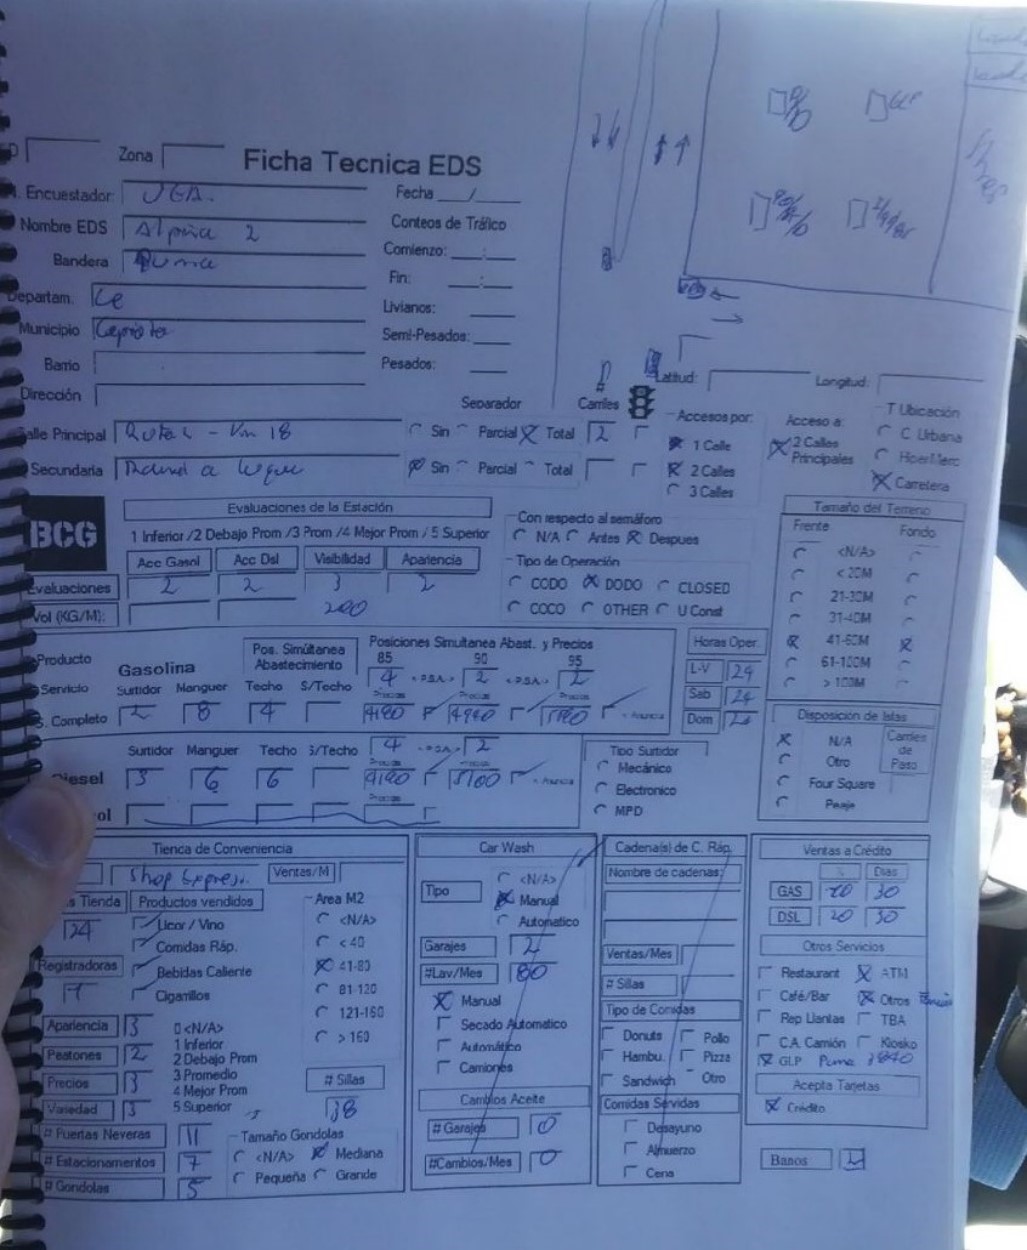 Zona
Ficha Tecnica EDS
Encuestador
Fecha __/____
Nombre EDS Alpina 2
Conteos de Tráfico
Bandera Puma
Comienzo: __:__
Fin: __:__
Departam.
Livianos:
Municipio
Semi-Pesados:
Barrio
Pesados:
Latitud: Longitud:
Dirección
Separador # Carriles
Accesos por: Acceso a: T Ubicación
Calle Principal Ruta - Km 18 Sin Parcial X Total 2
1 Calle X 2 Calles Principales C. Urbana
Secundaria a X Sin Parcial Total
2 Calles
3 Calles
X Carretera
BCG
Evaluaciones de la Estación
1 Inferior /2 Debajo Prom /3 Prom /4 Mejor Prom / 5 Superior
Con respecto al semáforo
N/A Antes X Despues
Tamaño del Terreno
Frente Fondo
Acc Gasol Acc Dsl Visibilidad Apariencia
Evaluaciones 2 2 3 2
Vol (KG/M): 200
Tipo de Operación
CODO X DODO CLOSED
COCO OTHER U Const
<N/A>
< 20M
21-30M
31-40M
X 41-60M X
61-100M
> 100M
Producto
Gasolina
Pos. Simúltanea Abastecimiento
Posiciones Simultanea Abast. y Precios
85 90 95
4 2 2
Servicio Surtidor Manguer Techo S/Techo
S. Completo 2 8 4
Horas Oper.
L-V 24
Sab 24
Dom 24
Disposición de Islas
X N/A
Otro
Four Square
Peaje
Carriles de Paso
Surtidor Manguer Techo S/Techo 4 2
Diesel 3 6 6 4190 5100
Tipo Surtidor
Mecánico
Electronico
MPD
Tienca de Conveniencia
Shop Express Ventas/M
Tienda Productos vendidos
24
Licor / Vino
Comidas Ráp.
Bebidas Caliente
Cigarrillos
Registradoras
1
Area M2
<N/A>
< 40
X 41-80
81-120
121-160
> 160
Apariencia 3
Peatones 2
Precios 3
Variedad 3
0 <N/A>
1 Inferior
2 Debajo Prom
3 Promedio
4 Mejor Prom
5 Superior
# Sillas
38
# Puertas Neveras 11
# Estacionamientos 7
# Gondolas 5
Tamaño Gondolas
<N/A> X Mediana
Pequeña Grande
Car Wash
Tipo
<N/A>
X Manual
Automatico
Garajes 2
#Lav/Mes 80
X Manual
Secado Automatico
Automático
Camiones
Cambios Aceite
# Garajes 0
#Cambios/Mes 0
Cadena(s) de C. Ráp.
Nombre de cadenas:
Ventas/Mes
# Sillas
Tipo de Comidas
Donuts Pollo
Hambu. Pizza
Sandwich Otro
Comidas Servidas
Desayuno
Almuerzo
Cena
Ventas a Crédito
% Dias
GAS 20 30
DSL 20 30
Otros Servicios
Restaurant X ATM
Café/Bar X Otros
Rep Llantas TBA
C.A. Camión Kiosko
X GLP Puma 3840
Acepta Tarjetas
X Crédito
Banos